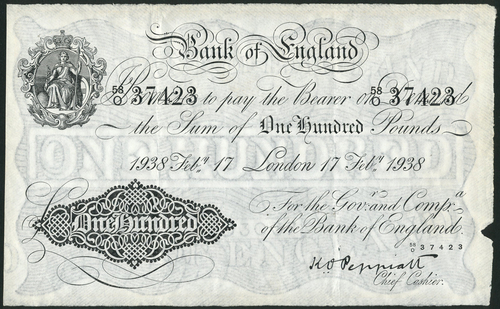 Bank of England
58/O 37423 to pay the Bearer on 58/O 37423
the Sum of One Hundred Pounds
1938 Feby. 17 London 17 Feby. 1938
For the Govr. and Compa.
of the Bank of England.
One Hundred
58/O 37423
K O Peppiatt
Chief Cashier.